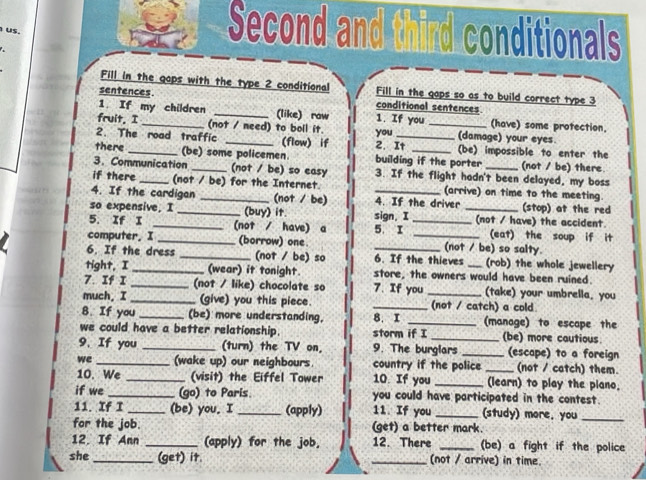 us.
Second and third conditionals
Fill in the gaps with the type 2 conditional
sentences.
1. If my children ________ (like) raw
fruit, I ________ (not / need) to boil it.
2. The road traffic ________ (flow) if
there ________ (be) some policemen.
3. Communication ______ (not / be) so easy
if there _____ (not / be) for the Internet.
4. If the cardigan __________ (not / be)
so expensive, I _________ (buy) it.
5. If I __________ (not / have) a
computer, I __________ (borrow) one.
6. If the dress __________ (not / be) so
tight, I __________ (wear) it tonight.
7. If I ________ (not / like) chocolate so
much, I _________ (give) you this piece.
8. If you ______ (be) more understanding,
we could have a better relationship.
9. If you __________ (turn) the TV on,
we __________ (wake up) our neighbours.
10. We ________ (visit) the Eiffel Tower
if we _________ (go) to Paris.
11. If I _____ (be) you, I ______ (apply)
for the job.
12. If Ann _______ (apply) for the job,
she ________ (get) it.
Fill in the gaps so as to build correct type 3
conditional sentences.
1. If you ________ (have) some protection,
you ________ (damage) your eyes.
2. It ______ (be) impossible to enter the
building if the porter _____ (not / be) there.
3. If the flight hadn't been delayed, my boss
_________ (arrive) on time to the meeting.
4. If the driver ________ (stop) at the red
sign, I ________ (not / have) the accident.
5. I __________ (eat) the soup if it
_________ (not / be) so salty.
6. If the thieves __ (rob) the whole jewellery
store, the owners would have been ruined.
7. If you ________ (take) your umbrella, you
________ (not / catch) a cold.
8. I __________ (manage) to escape the
storm if I __________ (be) more cautious.
9. The burglars ______ (escape) to a foreign
country if the police ____ (not / catch) them.
10. If you _______ (learn) to play the piano,
you could have participated in the contest.
11. If you ______ (study) more, you ______
(get) a better mark.
12. There _____ (be) a fight if the police
________ (not / arrive) in time.